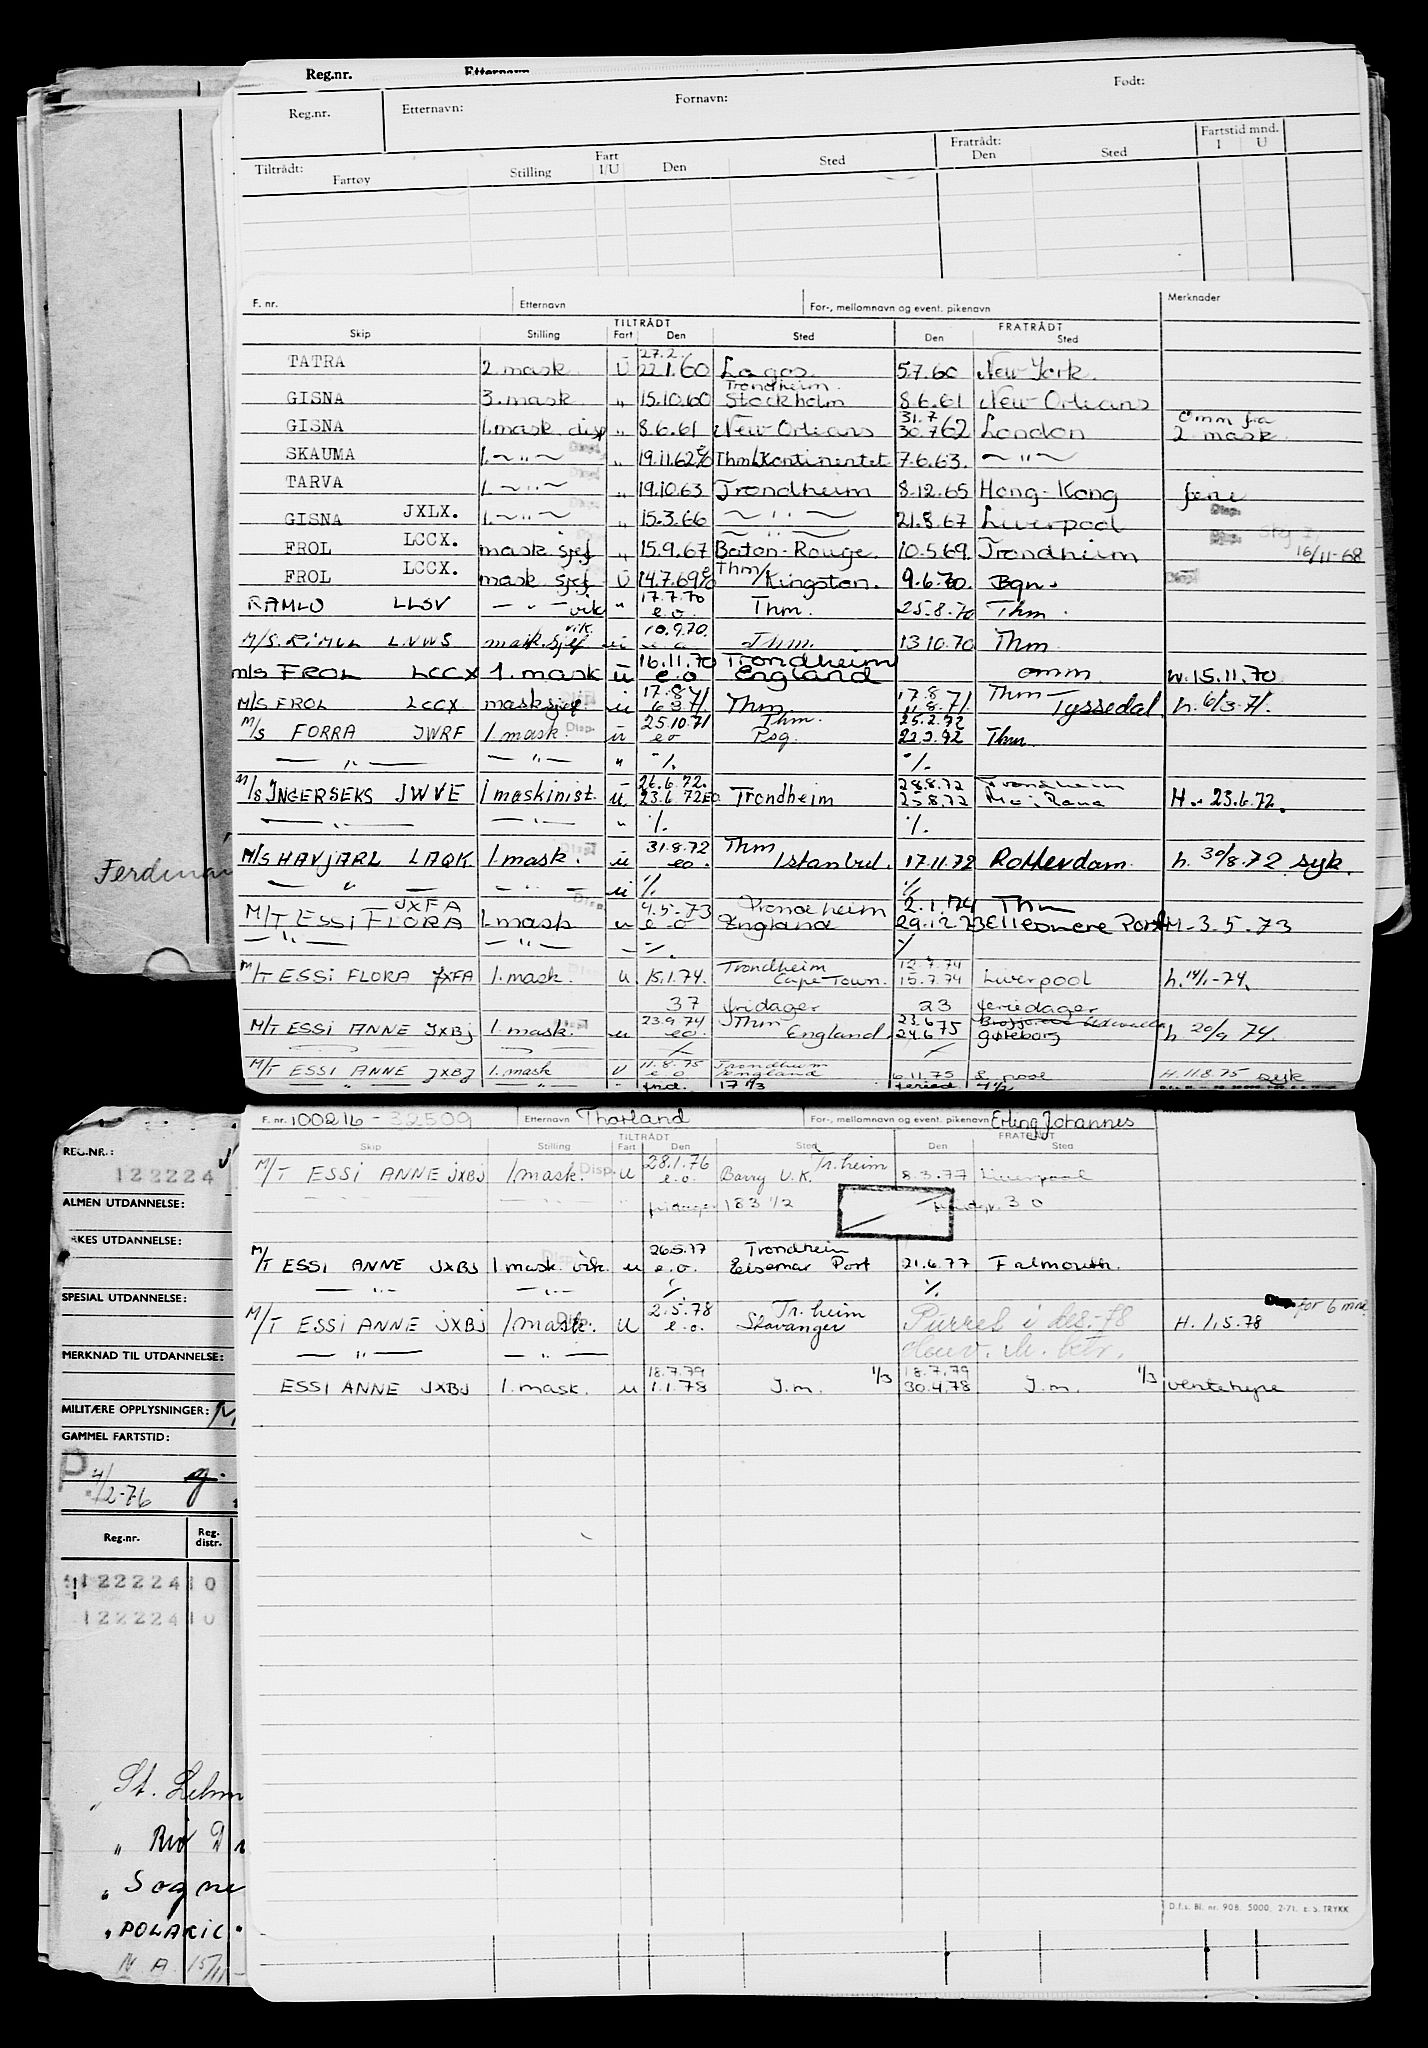 Reg.nr. Etternavn
Reg.nr. Etternavn: Fornavn: Født:
Tiltrådt: Fartøy Stilling Fart I/U Den Sted Fratrådt: Den Sted Fartstid mnd. I U
F. nr. Etternavn For-, mellomnavn og event. pikenavn Merknader
TILTRÅDT FRATRÅDT
Skip Stilling Fart Den Sted Den Sted
27.2.
TATRA 2 mask. U 22.1.60 Lagos. 5.7.60 New York.
Trondheim.
GISNA 3. mask. " 15.10.60 Stockholm 8.6.61 New Orleans
31.7 Omm fra
GISNA 1. mask disp " 8.6.61 New Orleans 30.762 London 2 mask
SKAUMA 1. ~ " ~ " 19.11.62 % Thm/Kontinentet 7.6.63. ~ " ~
TARVA 1. ~ " ~ " 19.10.63 Trondheim 8.12.65 Hong-Kong ferie
Disp.
GISNA JXLX. 1. ~ " ~ " 15.3.66 ~ " ~ 21.8.67 Liverpool
FROL LCCX. mask sjef " 15.9.67 Baton-Rouge. 10.5.69. Trondheim 16/11-68
FROL LCCX. mask sjef U 14.7.69 % Thm/Kingston. 9.6.70. Bgn.
17.7.70
RAMLO LLSV — " — vik " e.o. Thm. 25.8.70 Thm.
vik. 10.9.70.
M/S. RIMUL LNWS mask.sjef u e.o Thm. 13.10.70 Thm.
16.11.70 Trondheim
M/S FROL LCCX 1. mask u e.o England omm. h.15.11.70
17.8.71 17.8 Thm
M/S FROL LCCX masksjef u 6.3.71. Thm. 11.8.71. Tyssedal. h. 6/3-71.
25.10.71 Thm. 25.2.72
M/S FORRA JWRF 1. mask. u eo Psg. 23.2.72 Thm.
— " — — " — " "/. "/.
26.6.72. 28.8.72 Trondheim
M/S INGERSEKS JWVE 1 maskinist. u. 23.6.72EO Trondheim 25.8.72 Mo i Rana H.. 23.6.72.
— " — — " — " /. /.
31.8.72 Thm
M/S HAVJARL LAQK 1. mask. u eo. Istanbul. 17.11.72 Rotterdam. h. 30/8.72 syk.
— " — — " — u /. /.
JXFA 4.5-73 Trondheim 2.1.74 Thm
M/T ESSI FLORA 1. mask u e-o England 29.12.73 Ellesmere Port H-3.5.73
— " — — " — - /. /
Trondheim 12.7.74
M/T ESSI FLORA JXFA 1. mask. u 15.1.74. Cape Town. 15.7.74 Liverpool h.14/1-74.
37 fridager 23 feriedager
23.9.74 Thm 23.6
M/T ESSI ANNE JXBJ 1. mask. u eo. England. 24.6.75 Gøteborg h 20/9 74.
11.8.75 Trondheim
M/T ESSI ANNE JXBJ 1. mask u e o England 6.11.75 H. 11.8.75 syk
" " 17 1/3
Ferdinan
F. nr. 100216 - 32509 Etternavn Thorland For-, mellomnavn og event. pikenavn Erling Johannes
TILTRÅDT FRATRÅDT
Skip Stilling Fart Den Sted Den Sted
28.1.76 Tr.heim
M/T ESSI ANNE JXBJ 1. mask. Disp. u e.o. Barry U.K. 8.3.77 Liverpool
fridager 183 1/2 30
26.5.77 Trondheim
M/T ESSI ANNE JXBJ 1 mask. vik. u e.o. Port 21.6.77 Falmouth.
— " — — " — /. /.
2.5.78 Tr.heim Disp. for 6 mnd.
M/T ESSI ANNE JXBJ 1 mask. u e.o. Stavanger Purret i des.-78 H. 1.5.78
— " — — " —
18.7.79 18.7.79
ESSI ANNE JXBJ 1. mask. u 1.1.78 J.m. 1/3 30.4.78 J.m. 1/3 ventehyre
D.f.s. Bl. nr. 908. 5000. 2-71. E. S. TRYKK
REG.NR.:
122224
ALMEN UTDANNELSE:
RKES UTDANNELSE:
SPESIAL UTDANNELSE:
MERKNAD TIL UTDANNELSE:
MILITÆRE OPPLYSNINGER: M
GAMMEL FARTSTID:
P 4/2-76 g.
Reg.nr. Reg. distr.
122224 10
122224 10
St.
" Rio D
" Sogne
" POLARIC
N. A. 15/11-